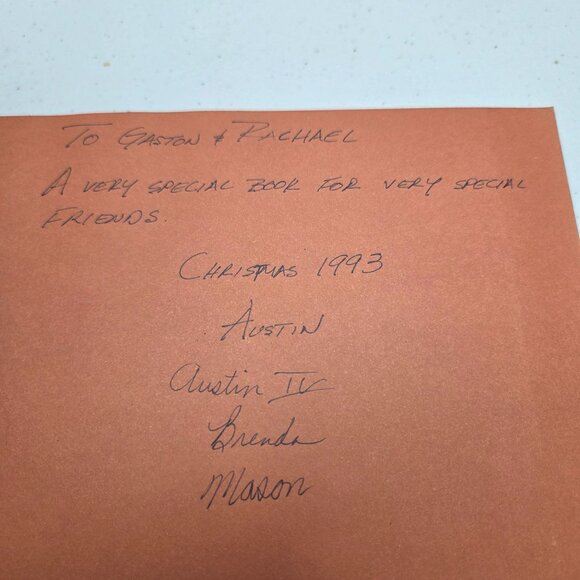 TO GASTON & RACHAEL
A VERY SPECIAL BOOK FOR VERY SPECIAL
FRIENDS.
CHRISTMAS 1993
AUSTIN
Austin IV
Brenda
Mason